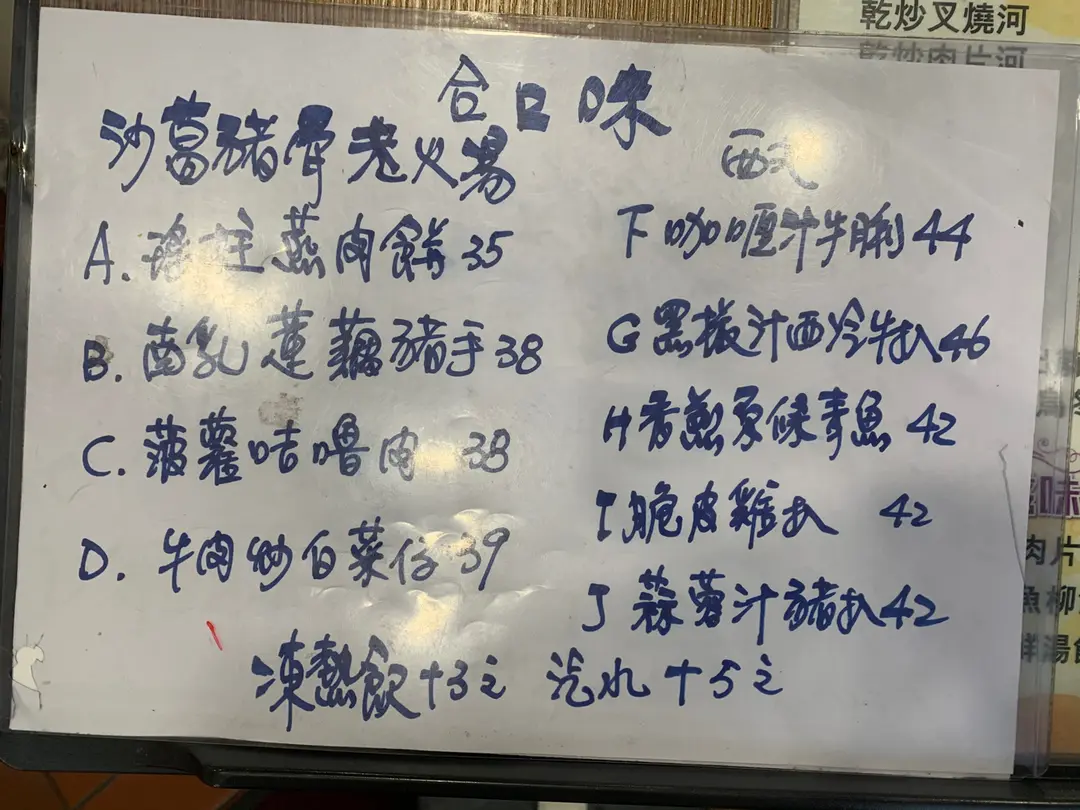 合口味
沙葛豬骨老火湯
A. 瑤柱蒸肉餅 35
B. 南乳蓮藕豬手 38
C. 菠蘿咕嚕肉 38
D. 牛肉炒白菜仔 39
西式
F 咖喱汁牛脷 44
G 黑椒汁西冷牛扒 46
H 香煎原條青魚 42
I 脆皮雞扒 42
J 蒜蓉汁豬扒 42
凍熱飲+3元 汽水+5元
乾炒叉燒河
乾炒肉片河
味
肉片
魚柳
鮮湯